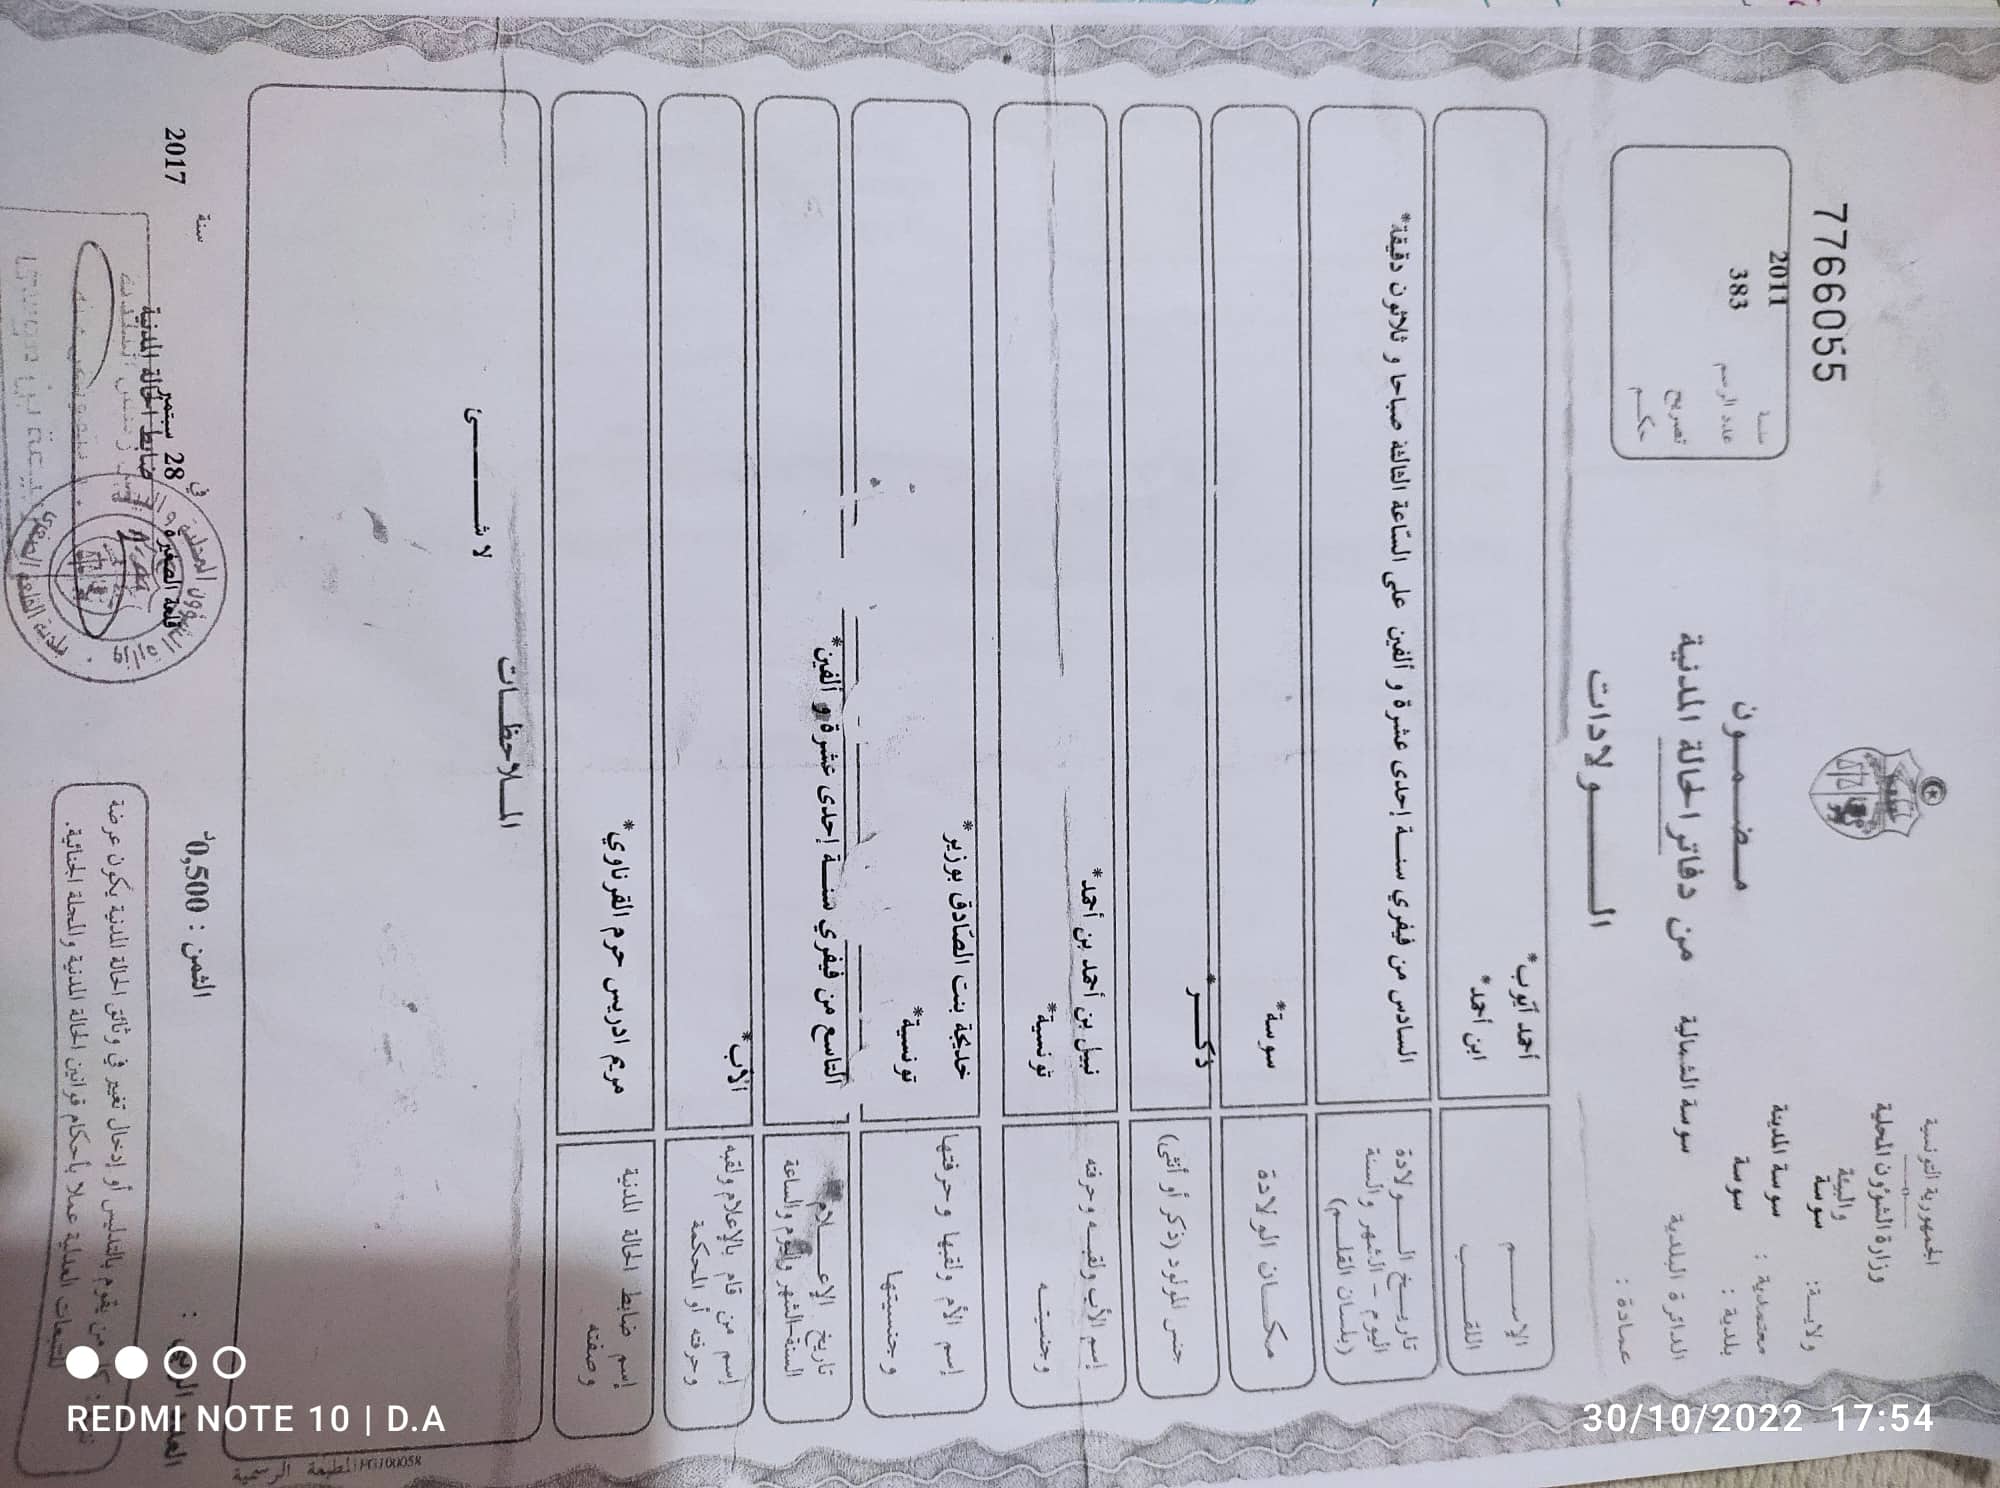 الجمهورية التونسية
وزارة الشؤون المحلية
والبيئة
ولايــة: سوسة
معتمدية : سوسة المدينة
بلدية : سوسة
الدائرة البلدية سوسة الشمالية
عمادة :
7766055
سنة 2011
عدد الرسم 383
تصريح
حكم
مـضـمـون
من دفاتر الحالة المدنية
الـــولادات
الإســـم أحمد أيوب*
اللقـــب ابن أحمد*
تاريـخ الـــولادة
اليوم - الشهر والسنة
(بلسان القلـم)
السادس من فيفري سنـة إحدى عشرة و ألفين على السّاعة الثالثة صباحا و ثلاثون دقيقة*
مكــان الولادة سوسة*
جنس المولود (ذكر أو أنثى) ذكــر*
إسم الأب ولقبـه وحرفته نبيل بن أحمد بن أحمد*
وجنسيتـه تونسية*
إسم الأم ولقبها وحرفتها خديجة بنت الصّادق بوزير*
وجنسيتها تونسية*
تاريخ الإعـــلام
السنة-الشهر واليوم والساعة
التاسع من فيفري سنـة إحدى عشرة و ألفين*
إسم من قام بالإعلام ولقبه
وحرفته أو المحكمة
الأب*
إسم ضابط الحالة المدنية
وصفته
مريم ادريس حرم القرناوي*
المـلاحظـات
لا شـــــئ
الثمن : 0,500د
في 28 سبتمبر سنة 2017
ضابط الحالة المدنية
كل من يقوم بالتدليس أو إدخال تغيير في وثائق الحالة المدنية يكون عرضة
للتتبعات العدلية عملا بأحكام قوانين الحالة المدنية والمجلة الجنائية.
المطبعة الرسمية
REDMI NOTE 10 | D.A
30/10/2022 17:54